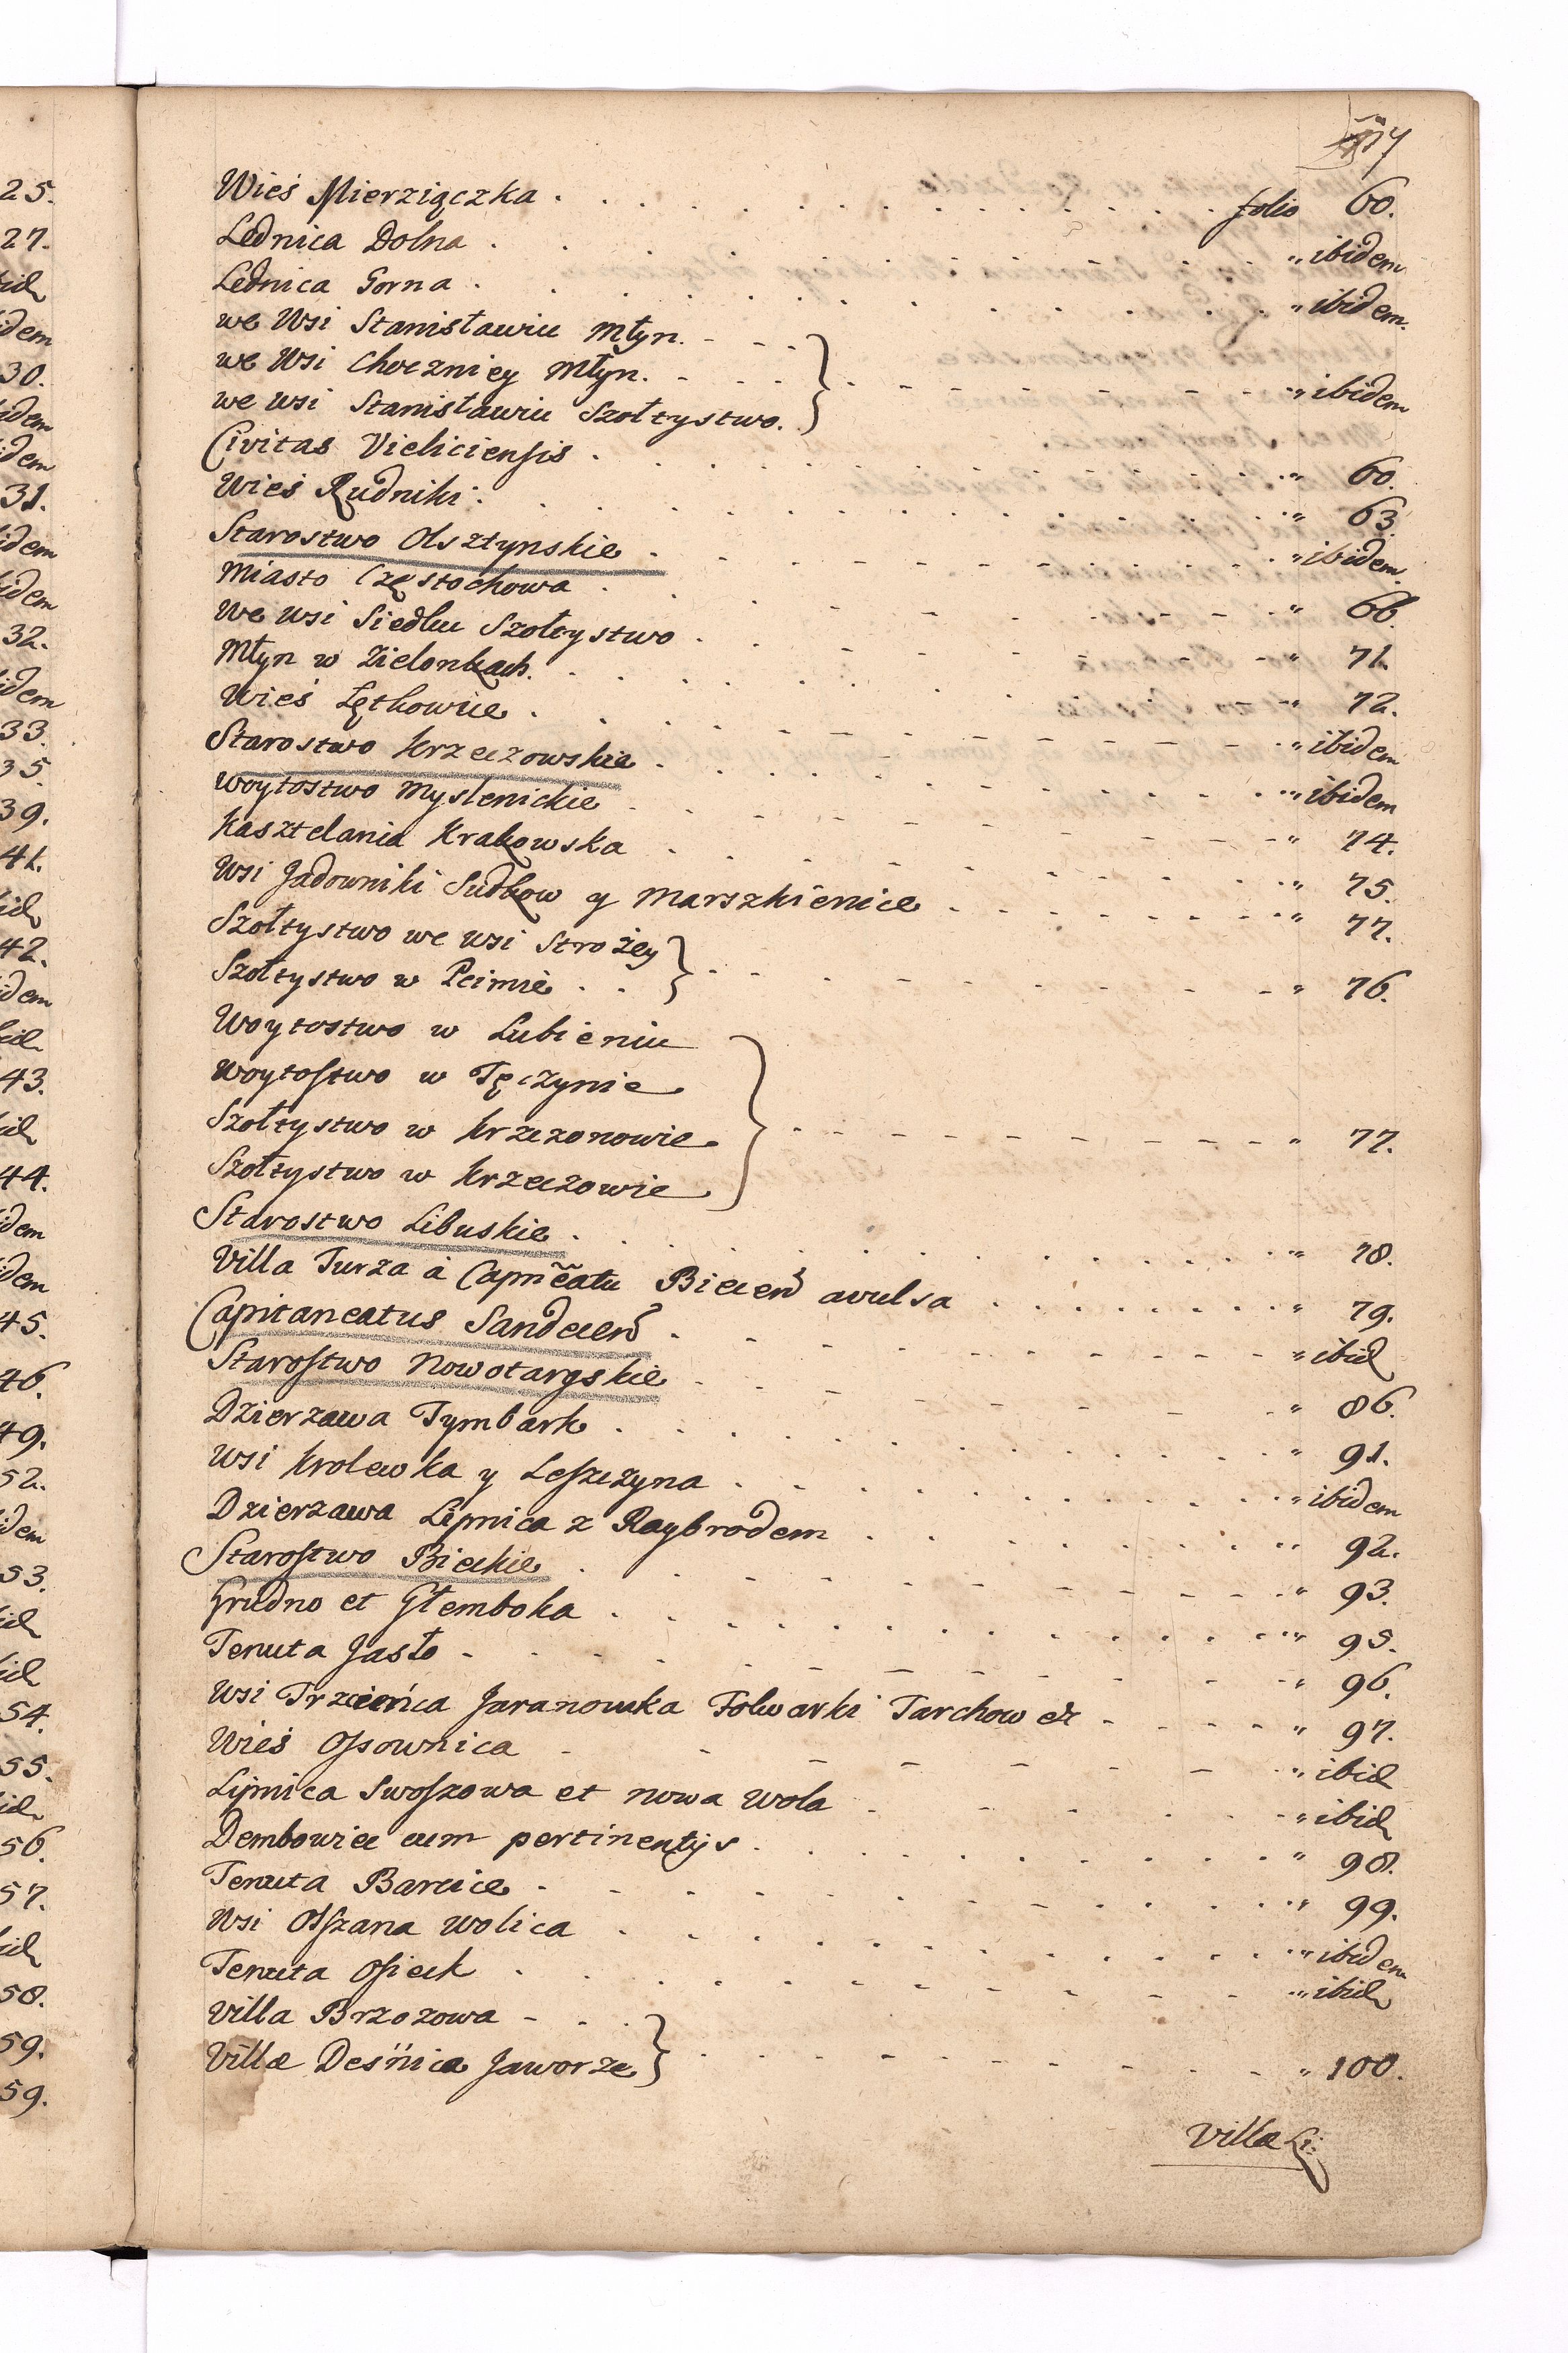 25.
27.
idem
30.
idem
idem
31.
idem
idem
32.
idem
33.
35
39.
41.
42.
idem
43.
44.
idem
idem
45.
46.
49.
52.
idem
53.
54.
55.
56.
57.
58.
59.
59.
Wieś Mierziączka . . . . . folio 60.
Lednica Dolna . . . . . " ibidem
Lednica Gorna . . . . . " ibidem.
we Wsi Stanisławiu Młyn. - - -
we Wsi Choczniey Młyn. - - - } - - - " ibidem
we wsi Stanisławiu Szołtystwo.
Civitas Vieliciensis . . . . . " 60.
Wieś Rudniki . . . . . " 63.
Starostwo Olsztynskie . . . . . " ibidem.
Miasto Częstochowa . . . . . " 66.
we wsi Siedlcu Szołtystwo . . . . . " 71.
Młyn w Zielonkach. . . . . . " 72.
Wieś Łętkowice . . . . . " ibidem
Starostwo Krzeczowskie . . . . . " ibidem
Woytostwo Myslenickie . . . . . " 74.
Kasztelania Krakowska . . . . . " 75.
Wsi Jadowniki Sudkow y Marszkienice . . . . . " 77.
Szołtystwo we wsi Strożey
Szołtystwo w Pcimie . . } - - - " 76.
Woytostwo w Lubieniu
Woytostwo w Tęczynie
Szołtystwo w Krzczonowie } - - - " 77.
Szołtystwo w Krzeczowie
Starostwo Libuskie . . . . . " 78.
Villa Turza à Capnẽatu Biecen avulsa . . . . . " 79.
Capitaneatus Sandecen . . . . . " ibid
Starostwo Nowotargskie . . . . . " 86.
Dzierzawa Tymbark . . . . . " 91.
Wsi Krolewka y Leszczyna . . . . . " ibidem
Dzierzawa Lipnica z Raybrodem . . . . . " 92.
Starostwo Bieckie . . . . . " 93.
Grudno et Głemboka . . . . . " 95.
Tenuta Jasło . . . . . " 96.
Wsi Trzcieńca Jaranowka Folwarki Tarchow et - - - " 97.
Wieś Ossownica - - - " ibid
Lipnica Swoszowa et nowa Wola - - - " ibid
Dembowiec cum pertinentijs . . . . . " 98.
Tenuta Barcice . . . . . " 99.
Wsi Olszana Wolica . . . . . " ibidem
Tenuta Osieck . . . . . " ibid
Villa Brzozowa - . .
Villæ Desnica Jaworze } - - - " 100.
Villæ Li: